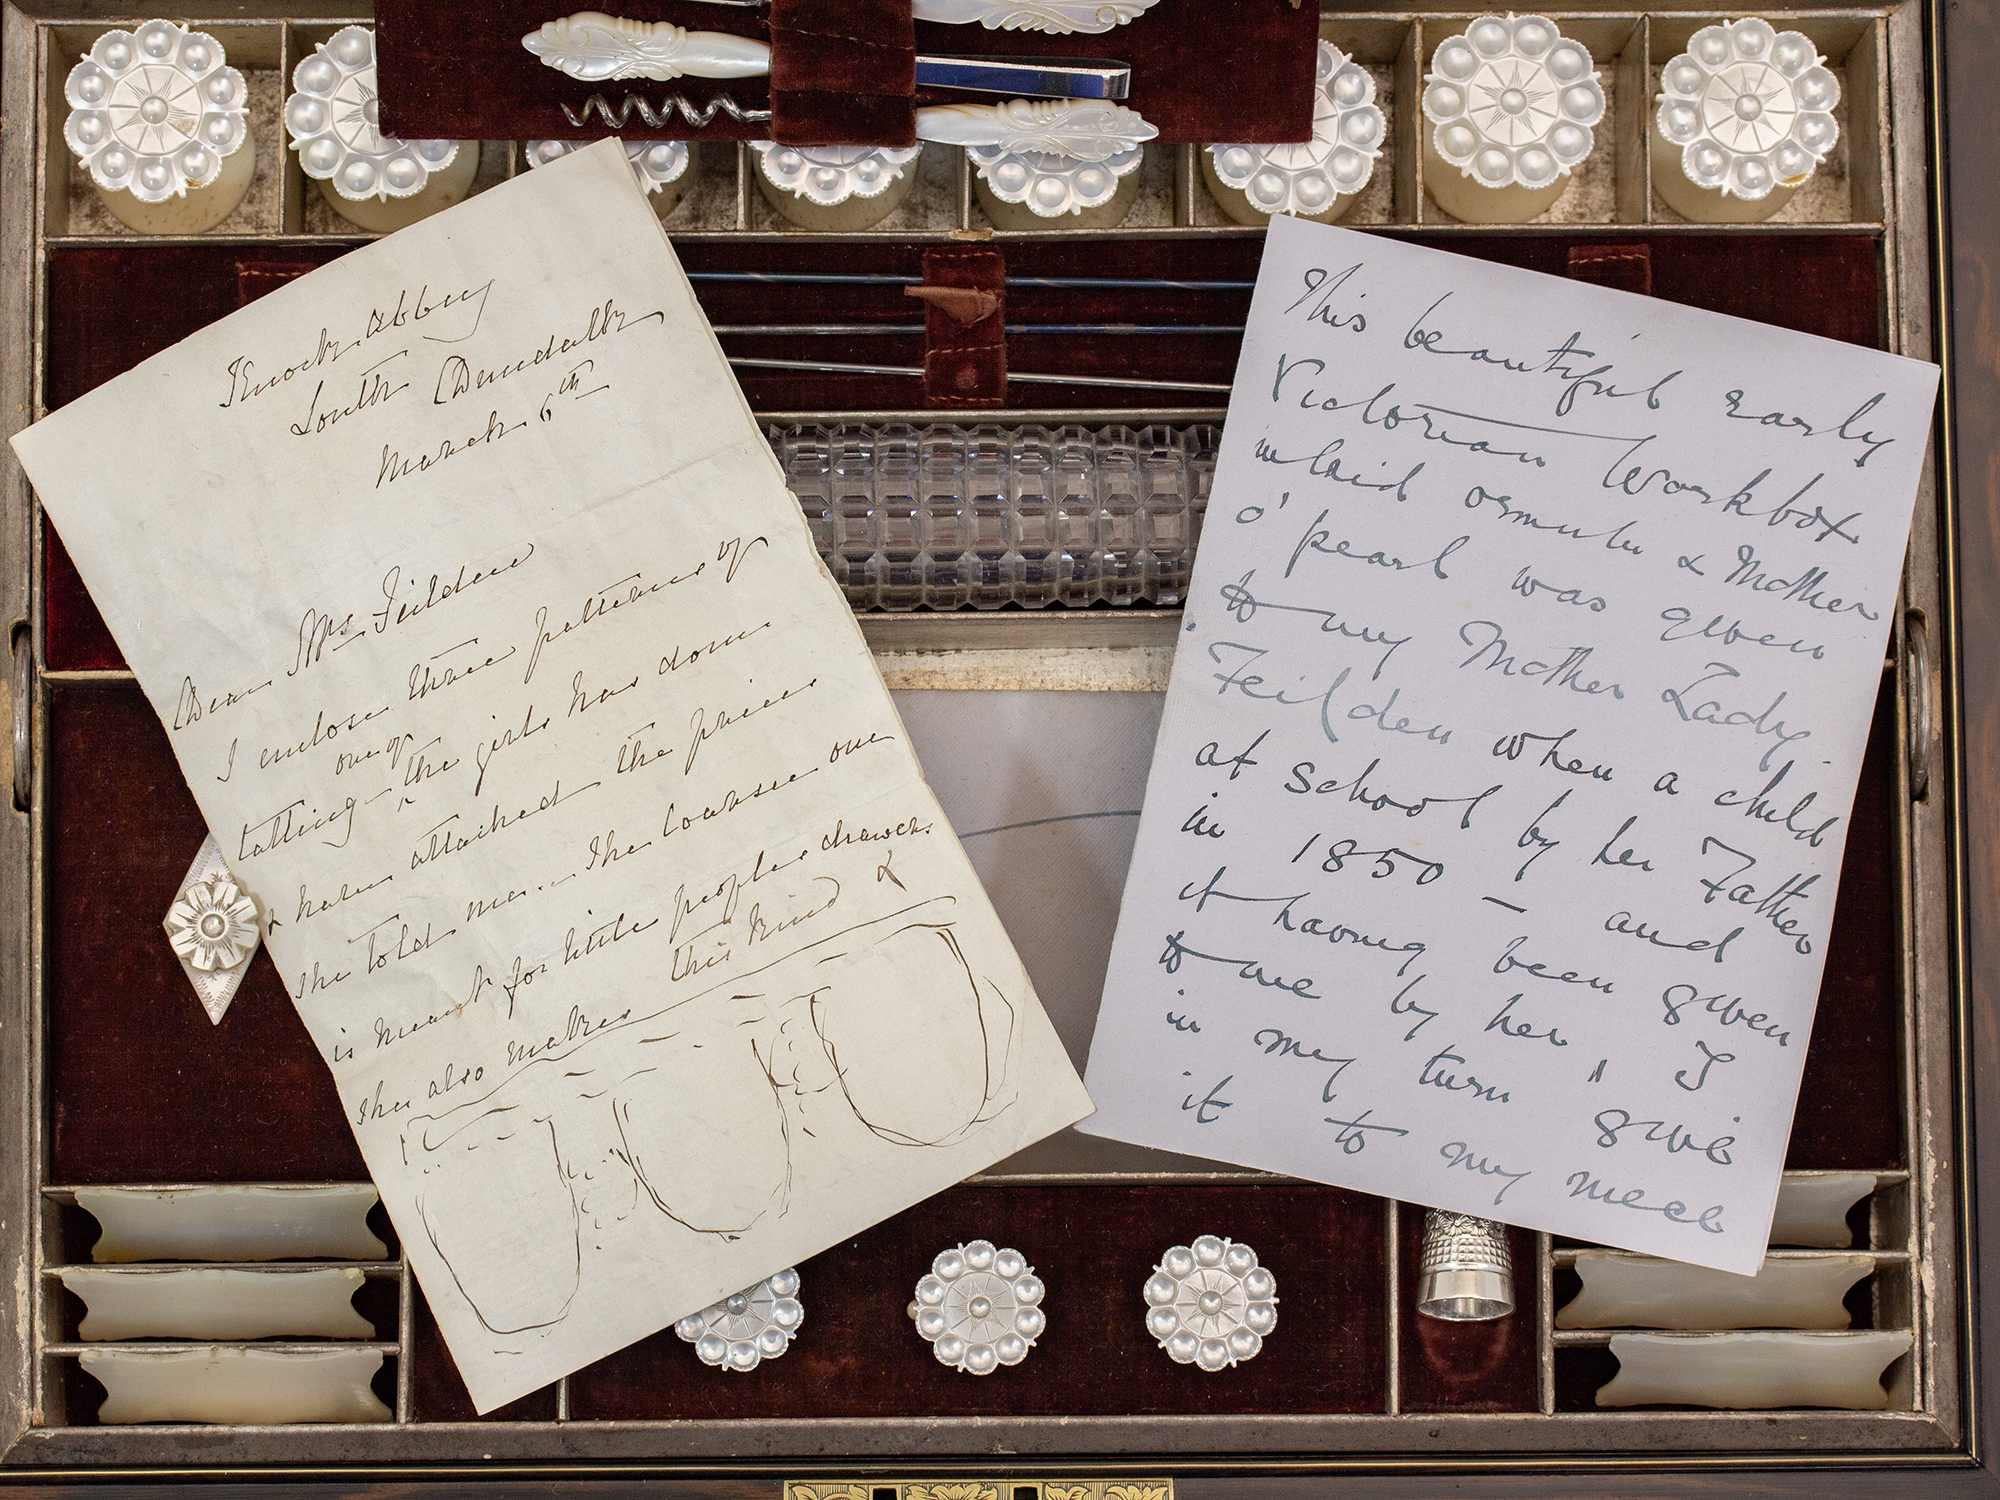 Knock Abbey
Louth Dundalk
March 6th
Dear Mrs Feilden
I enclose three patterns of
tatting one of the girls has done
& have attached the prices
she told me. The coarser one
is meant for little peoples drawers
she also makes this kind &
This beautiful early
Victorian Workbox
inlaid ormulu & Mother
o' pearl was given
to my Mother Lady
Feilden when a child
at school by her Father
in 1850 – and
it having been given
to me by her, I
in my turn, give
it to my niece